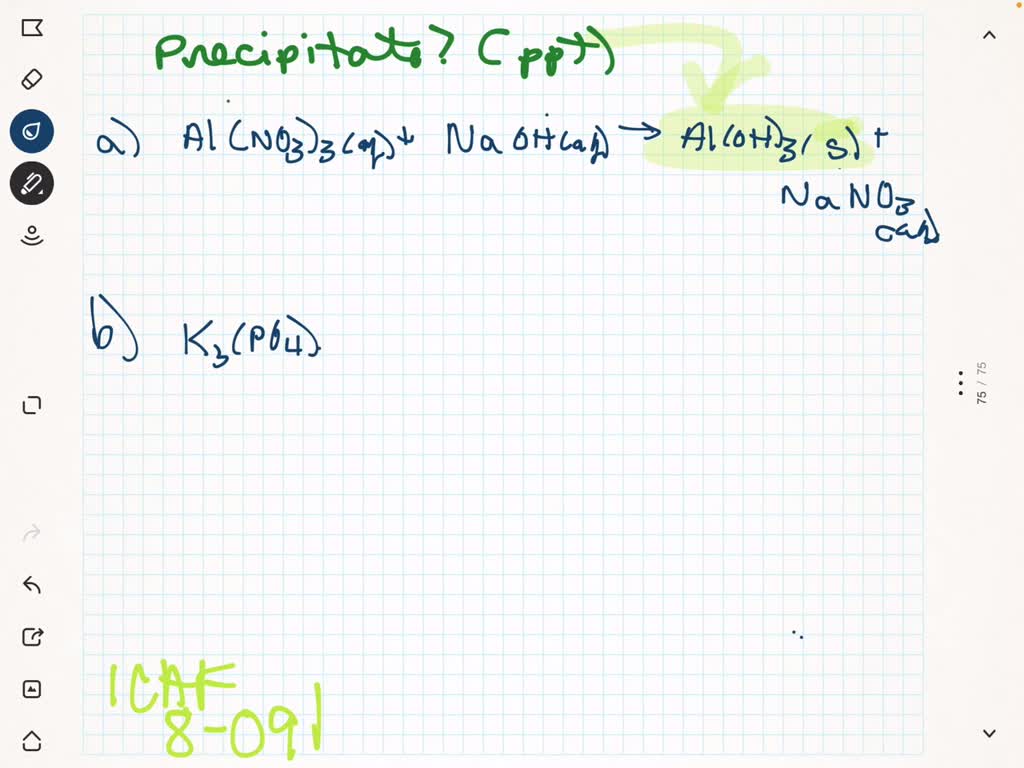 Precipitate? (ppt)
a) Al(NO3)3(aq) + NaOH(aq) → Al(OH)3(s) +
NaNO3
(aq)
b) K3(PO4)
75 / 75
ICAF
8-091